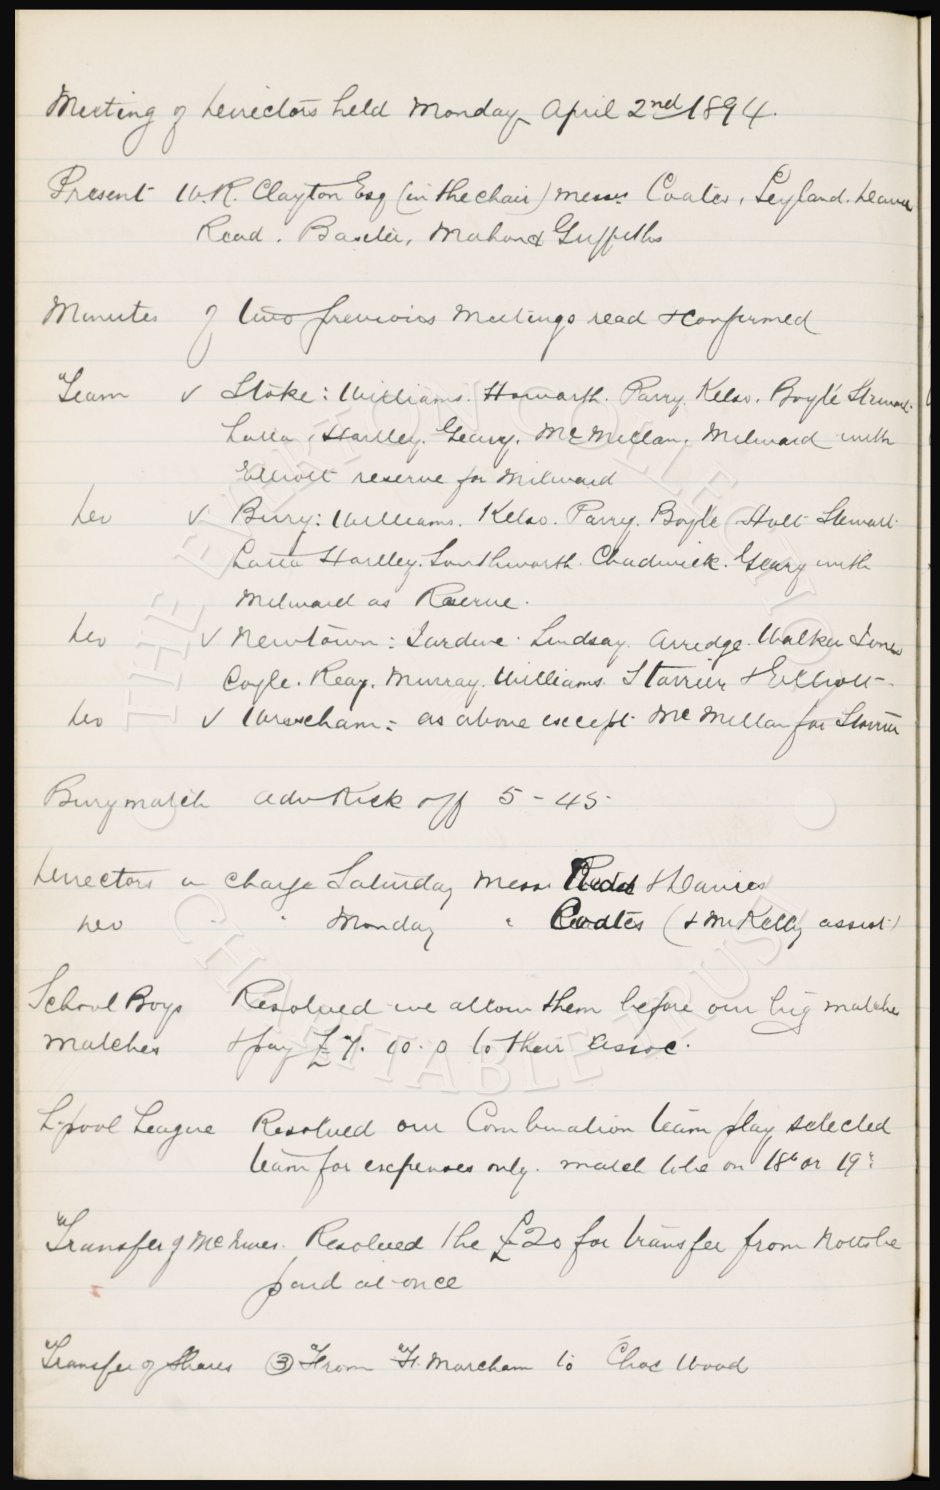 Meeting of Directors held Monday April 2nd 1894.
Present W.R. Clayton Esq (in the chair) Messrs Coates, Leyland. Davies
Read. Baxter, Mahon & Griffiths
Minutes of two previous Meetings read & confirmed
Team v Stoke: Williams. Howarth. Parry. Kelso. Boyle Stewart.
Latta, Hartley. Geary. McMillan. Milward with
Elliott reserve for Milward
Do v Bury: Williams. Kelso. Parry. Boyle Holt Stewart
Latta Hartley. Southworth. Chadwick. Geary with
Milward as Reserve.
Do v Newtown: Jardine. Lindsay. Arridge. Walker Jones
Coyle. Reay. Murray. Williams. Storrier & Elliott.
Do v Wrexham: as above except McMillan for Storrier
Bury match adv Kick off 5-45
Directors in charge Saturday Messrs Read & Davies
Do " " Monday " Coates (& Mr Kelly assist)
School Boys Resolved we allow them before our big matches
Matches & pay £7.10.0 to their assoc.
L.pool League Resolved our Combination team play selected
team for expenses only. match to be on 18th or 19th
Transfer of McInnes. Resolved the £20 for transfer from Notts be
paid at once
Transfer of Shares (3) From F. Marcham to Chas Wood
THE EVERTON COLLECTION
CHARITABLE TRUST